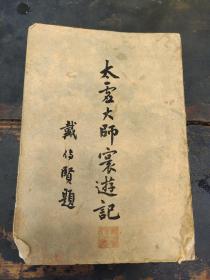 太虛大師寰遊記
戴傳賢題